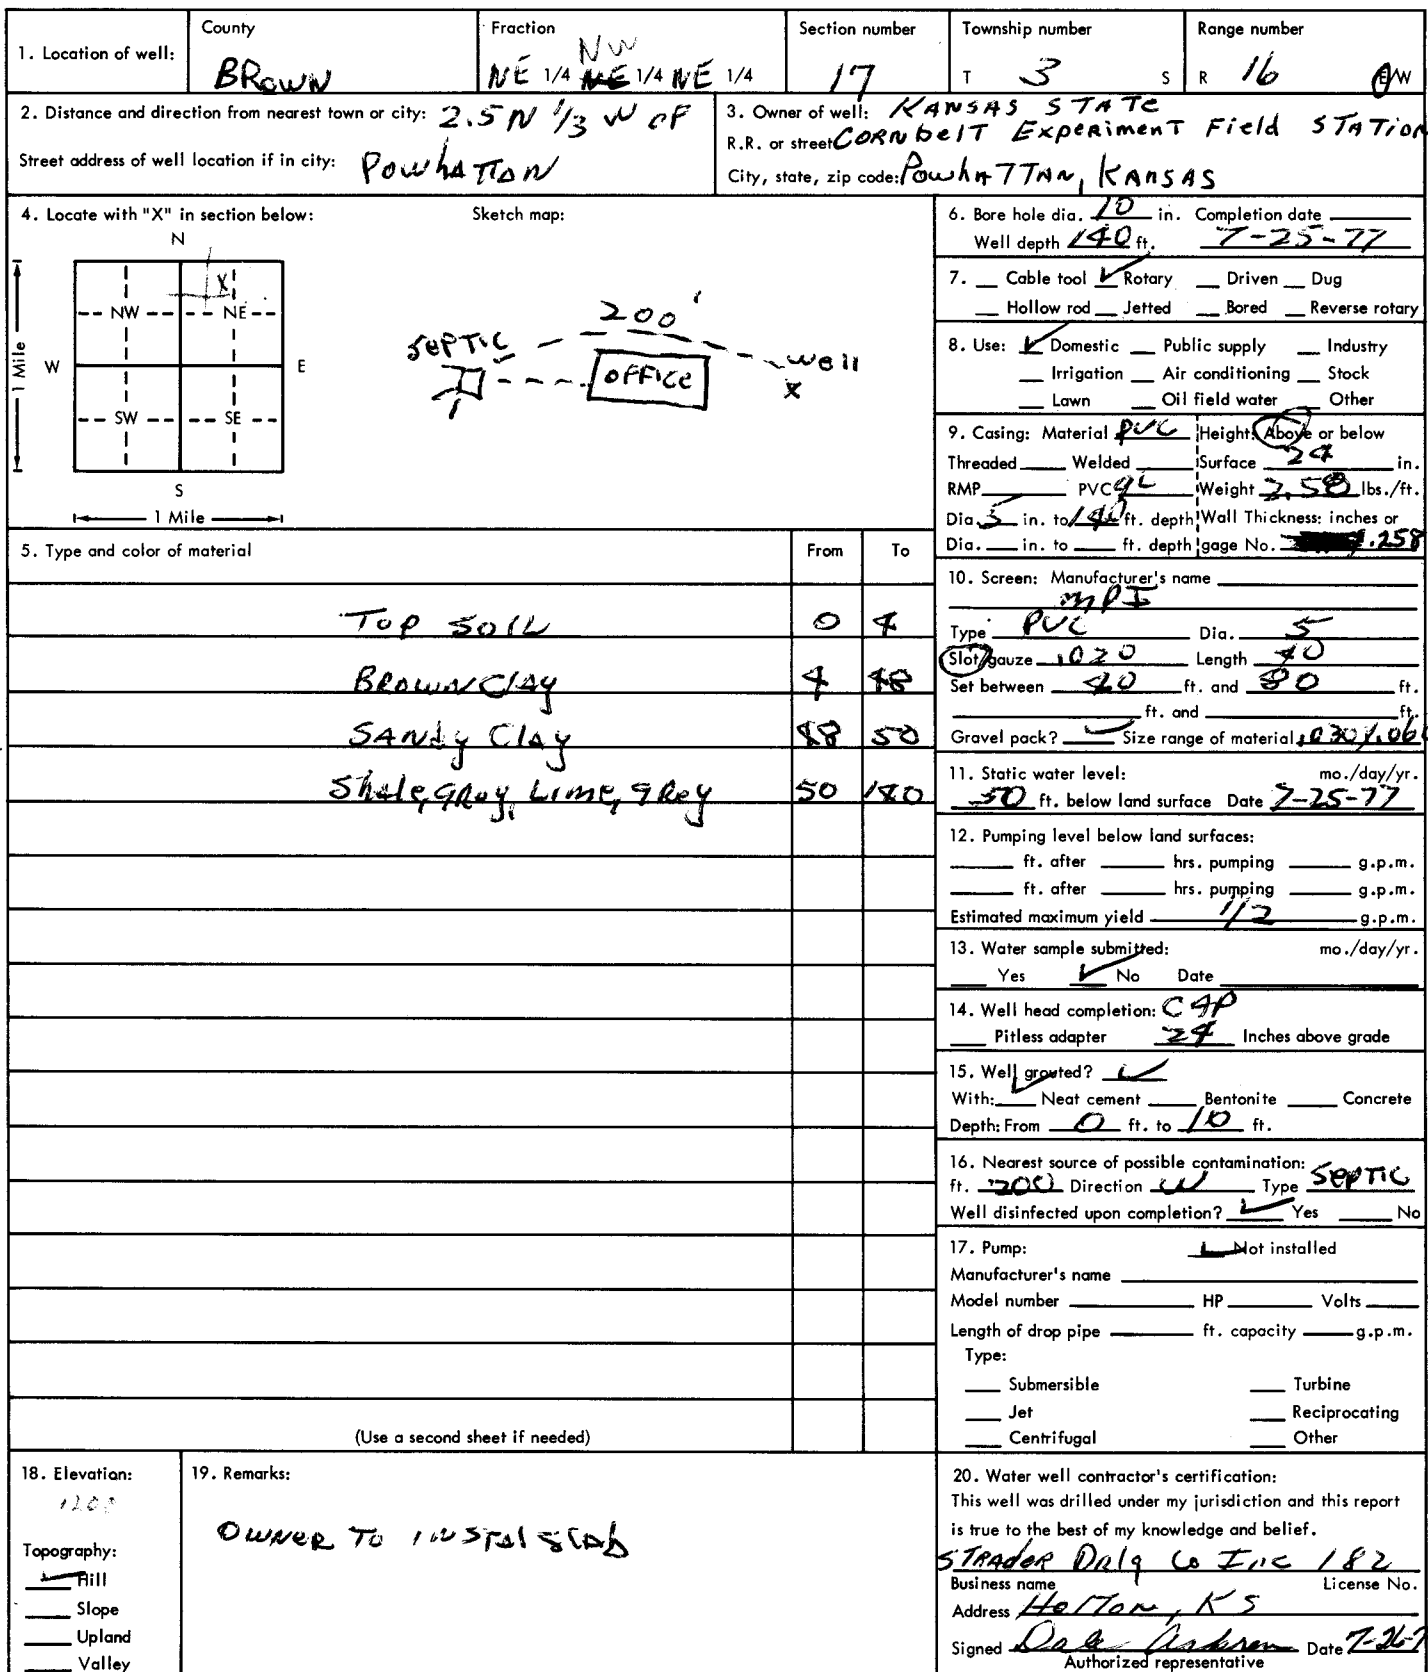 1. Location of well:
County
BROWN
Fraction
NW
NE 1/4 NE 1/4 NE 1/4
Section number
17
Township number
T 3 S
Range number
R 16 E/W
2. Distance and direction from nearest town or city: 2.5 N 1/3 W OF
Street address of well location if in city: POWHATTAN
3. Owner of well: KANSAS STATE
R.R. or street CORNbelT ExpeRimenT Field STATION
City, state, zip code: PowhATTAN, KANSAS
4. Locate with "X" in section below:
Sketch map:
N
X
NW NE
W E
SW SE
S
1 Mile
1 Mile
200'
SEPTIC
OFFICE
well
X
5. Type and color of material From To
Top SOIL 0 4
BROWN CLAY 4 48
SANdy CLAY 48 50
Shale, gray, Lime, gRey 50 140
(Use a second sheet if needed)
6. Bore hole dia. 10 in. Completion date
Well depth 140 ft. 7-25-77
7. Cable tool Rotary Driven Dug
Hollow rod Jetted Bored Reverse rotary
8. Use: Domestic Public supply Industry
Irrigation Air conditioning Stock
Lawn Oil field water Other
9. Casing: Material PVC Height: Above or below
Threaded Welded Surface 24 in.
RMP PVC GL Weight 2.58 lbs./ft.
Dia. 5 in. to 140 ft. depth Wall Thickness: inches or
Dia. in. to ft. depth gage No. .258
10. Screen: Manufacturer's name
MPI
Type PVC Dia. 5
Slot/gauze .020 Length 40
Set between 40 ft. and 80 ft.
ft. and ft.
Gravel pack? Size range of material .030/.060
11. Static water level: mo./day/yr.
50 ft. below land surface Date 7-25-77
12. Pumping level below land surfaces:
ft. after hrs. pumping g.p.m.
ft. after hrs. pumping g.p.m.
Estimated maximum yield 1/2 g.p.m.
13. Water sample submitted: mo./day/yr.
Yes No Date
14. Well head completion: CAP
Pitless adapter 24 Inches above grade
15. Well grouted?
With: Neat cement Bentonite Concrete
Depth: From 0 ft. to 10 ft.
16. Nearest source of possible contamination:
ft. 200 Direction W Type SEPTIC
Well disinfected upon completion? Yes No
17. Pump: Not installed
Manufacturer's name
Model number HP Volts
Length of drop pipe ft. capacity g.p.m.
Type:
Submersible Turbine
Jet Reciprocating
Centrifugal Other
18. Elevation:
1200
Topography:
Hill
Slope
Upland
Valley
19. Remarks:
OWNER TO INSTAl SlAb
20. Water well contractor's certification:
This well was drilled under my jurisdiction and this report
is true to the best of my knowledge and belief.
STRADER Drlg Co Inc 182
Business name License No.
Address Holton, KS
Signed Dale Date 7-26-7
Authorized representative